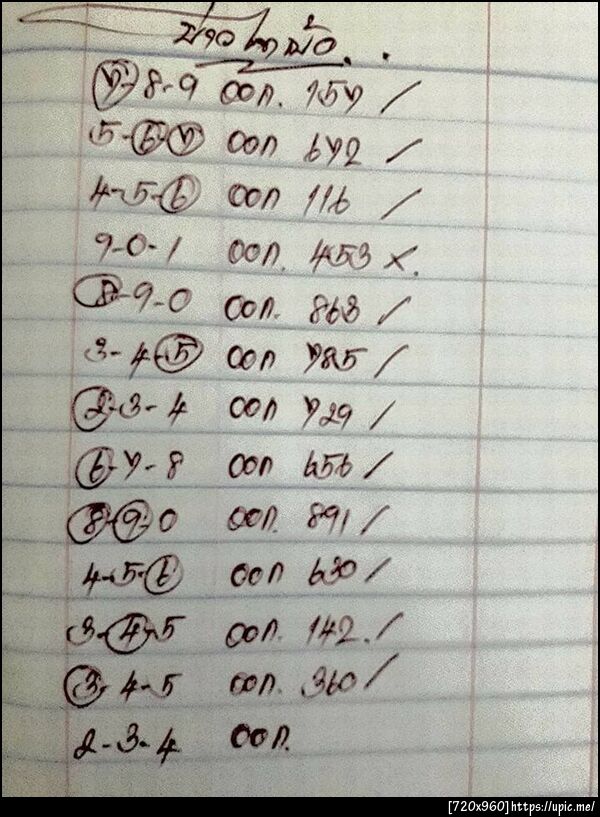 7-8-9 ออก. 157 /
5-6-7 ออก 672 /
4-5-6 ออก 116 /
9-0-1 ออก. 453 ×.
8-9-0 ออก. 863 /
3-4-5 ออก 785 /
2-3-4 ออก 729 /
6-7-8 ออก 656 /
8-9-0 ออก. 891 /
4-5-6 ออก 630 /
3-4-5 ออก. 142. /
3-4-5 ออก. 360 /
2-3-4 ออก.
[720x960]https://upic.me/